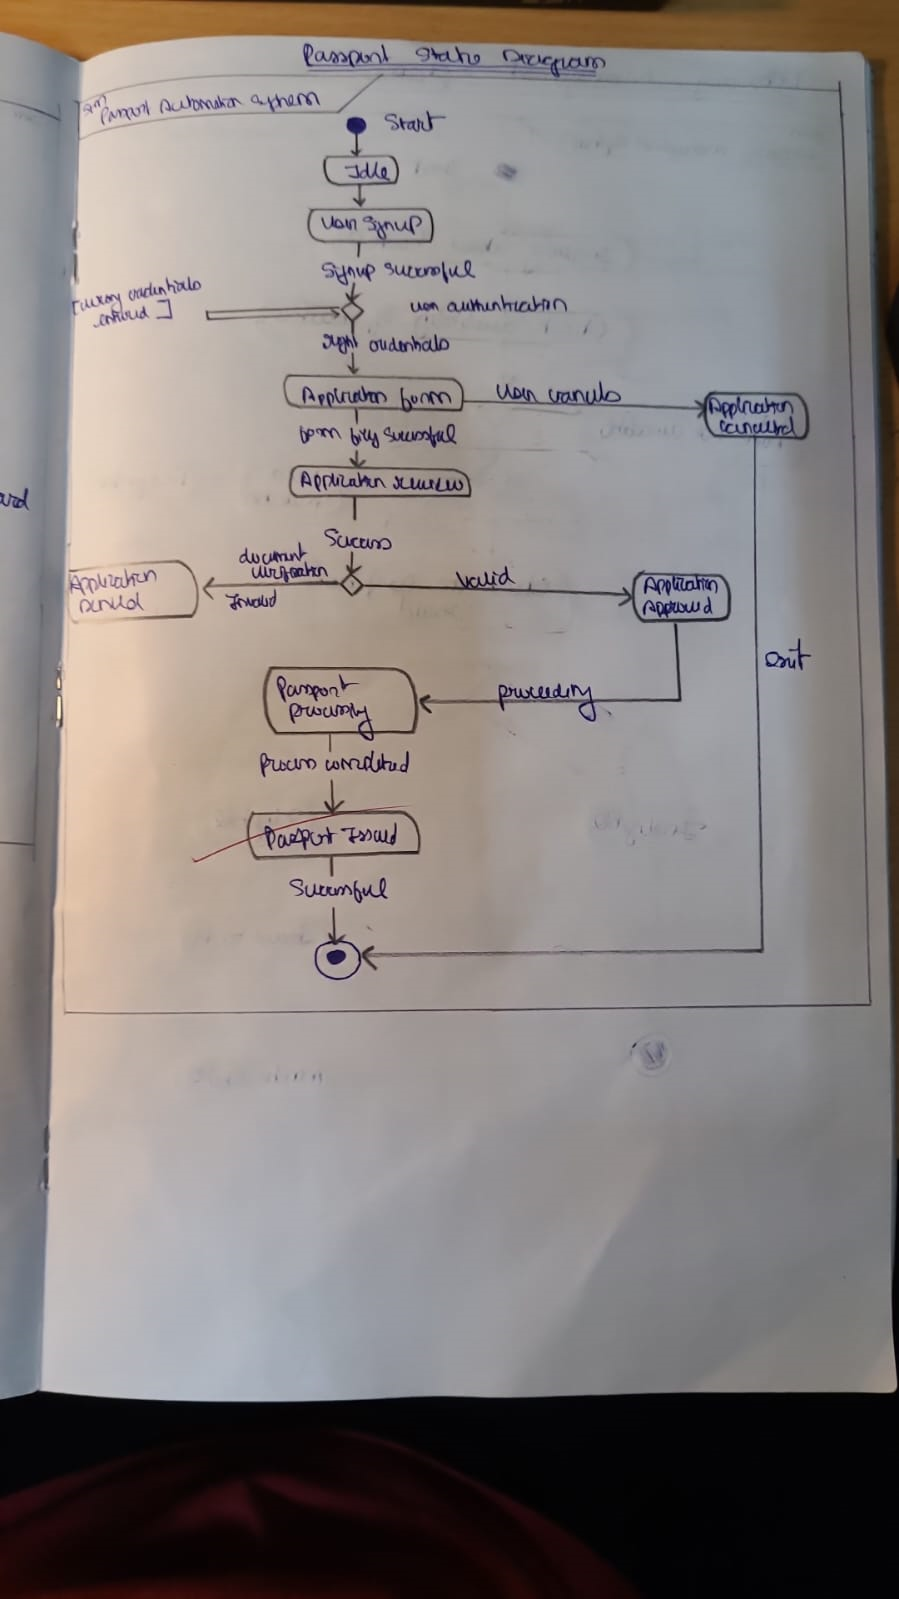 Passport State Diagram
Passport Automation system
Start
Idle
User Signup
Signup successful
[wrong credentials
entered]
user authentication
right credentials
Application form
User cancels
Application
cancelled
form successful
Application review
Success
document
verification
Invalid
Application
denied
valid
Application
Approved
exit
Passport
processing
proceeding
Process completed
Passport Issued
Successful